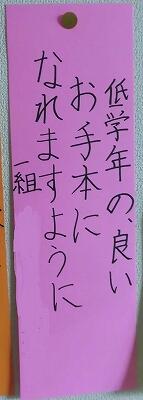 低学年の、良い
お手本に
なれますように
一組